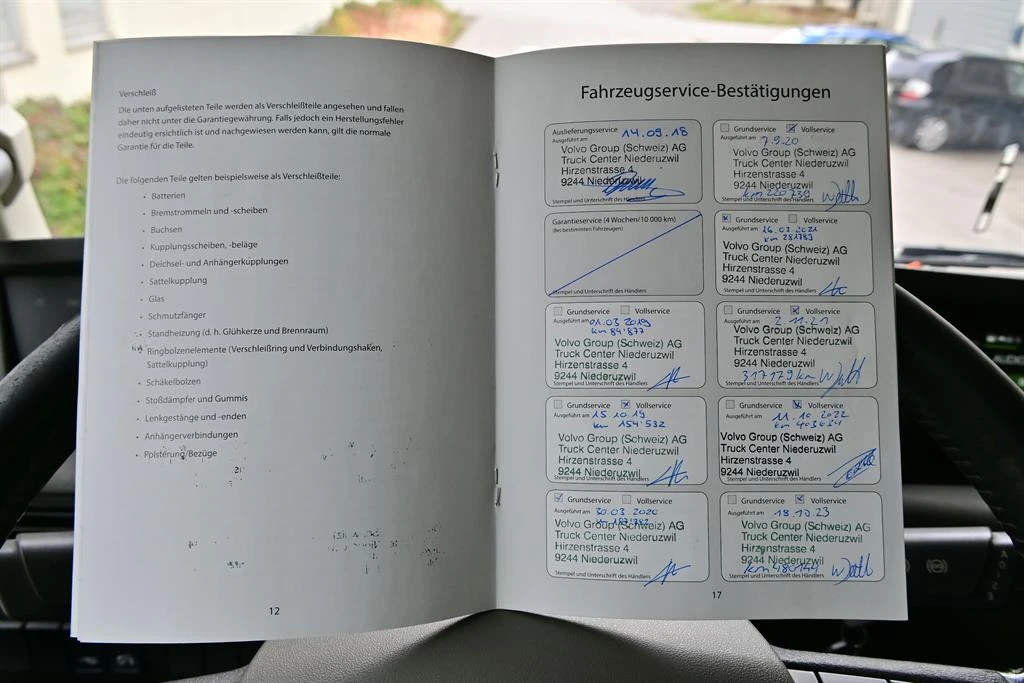 Verschleiß
Die unten aufgelisteten Teile werden als Verschleißteile angesehen und fallen
daher nicht unter die Garantiegewährung. Falls jedoch ein Herstellungsfehler
eindeutig ersichtlich ist und nachgewiesen werden kann, gilt die normale
Garantie für die Teile.
Die folgenden Teile gelten beispielsweise als Verschleißteile:
• Batterien
• Bremstrommeln und -scheiben
• Buchsen
• Kupplungsscheiben, -beläge
• Deichsel- und Anhängerkupplungen
• Sattelkupplung
• Glas
• Schmutzfänger
• Standheizung (d. h. Glühkerze und Brennraum)
• Ringbolzenelemente (Verschleißring und Verbindungshaken,
Sattelkupplung)
• Schäkelbolzen
• Stoßdämpfer und Gummis
• Lenkgestänge und -enden
• Anhängerverbindungen
• Polsterung/Bezüge
12
Fahrzeugservice-Bestätigungen
Auslieferungsservice 14.09.18
Ausgeführt am
Volvo Group (Schweiz) AG
Truck Center Niederuzwil
Hirzenstrasse 4
9244 Niederuzwil
Stempel und Unterschrift des Händlers
Garantieservice (4 Wochen/10 000 km)
(Bei bestimmten Fahrzeugen)
Stempel und Unterschrift des Händlers
Grundservice Vollservice
Ausgeführt am 01.03 2019
km 89'877
Volvo Group (Schweiz) AG
Truck Center Niederuzwil
Hirzenstrasse 4
9244 Niederuzwil
Stempel und Unterschrift des Händlers
Grundservice Vollservice
Ausgeführt am 15.10.19
km 154'532
Volvo Group (Schweiz) AG
Truck Center Niederuzwil
Hirzenstrasse 4
9244 Niederuzwil
Stempel und Unterschrift des Händlers
Grundservice Vollservice
Ausgeführt am 30.03.2020
Volvo Group (Schweiz) AG
Truck Center Niederuzwil
Hirzenstrasse 4
9244 Niederuzwil
Stempel und Unterschrift des Händlers
Grundservice Vollservice
Ausgeführt am 7.9.20
Volvo Group (Schweiz) AG
Truck Center Niederuzwil
Hirzenstrasse 4
9244 Niederuzwil
km 220739
Stempel und Unterschrift des Händlers
Grundservice Vollservice
Ausgeführt am 26.03.2021
km 281783
Volvo Group (Schweiz) AG
Truck Center Niederuzwil
Hirzenstrasse 4
9244 Niederuzwil
Stempel und Unterschrift des Händlers
Grundservice Vollservice
Ausgeführt am 2.11.21
Volvo Group (Schweiz) AG
Truck Center Niederuzwil
Hirzenstrasse 4
9244 Niederuzwil
317179 km
Stempel und Unterschrift des Händlers
Grundservice Vollservice
Ausgeführt am 11.10 2022
km 403634
Volvo Group (Schweiz) AG
Truck Center Niederuzwil
Hirzenstrasse 4
9244 Niederuzwil
Stempel und Unterschrift des Händlers
Grundservice Vollservice
Ausgeführt am 18.10.23
Volvo Group (Schweiz) AG
Truck Center Niederuzwil
Hirzenstrasse 4
9244 Niederuzwil
km 480144
Stempel und Unterschrift des Händlers
17